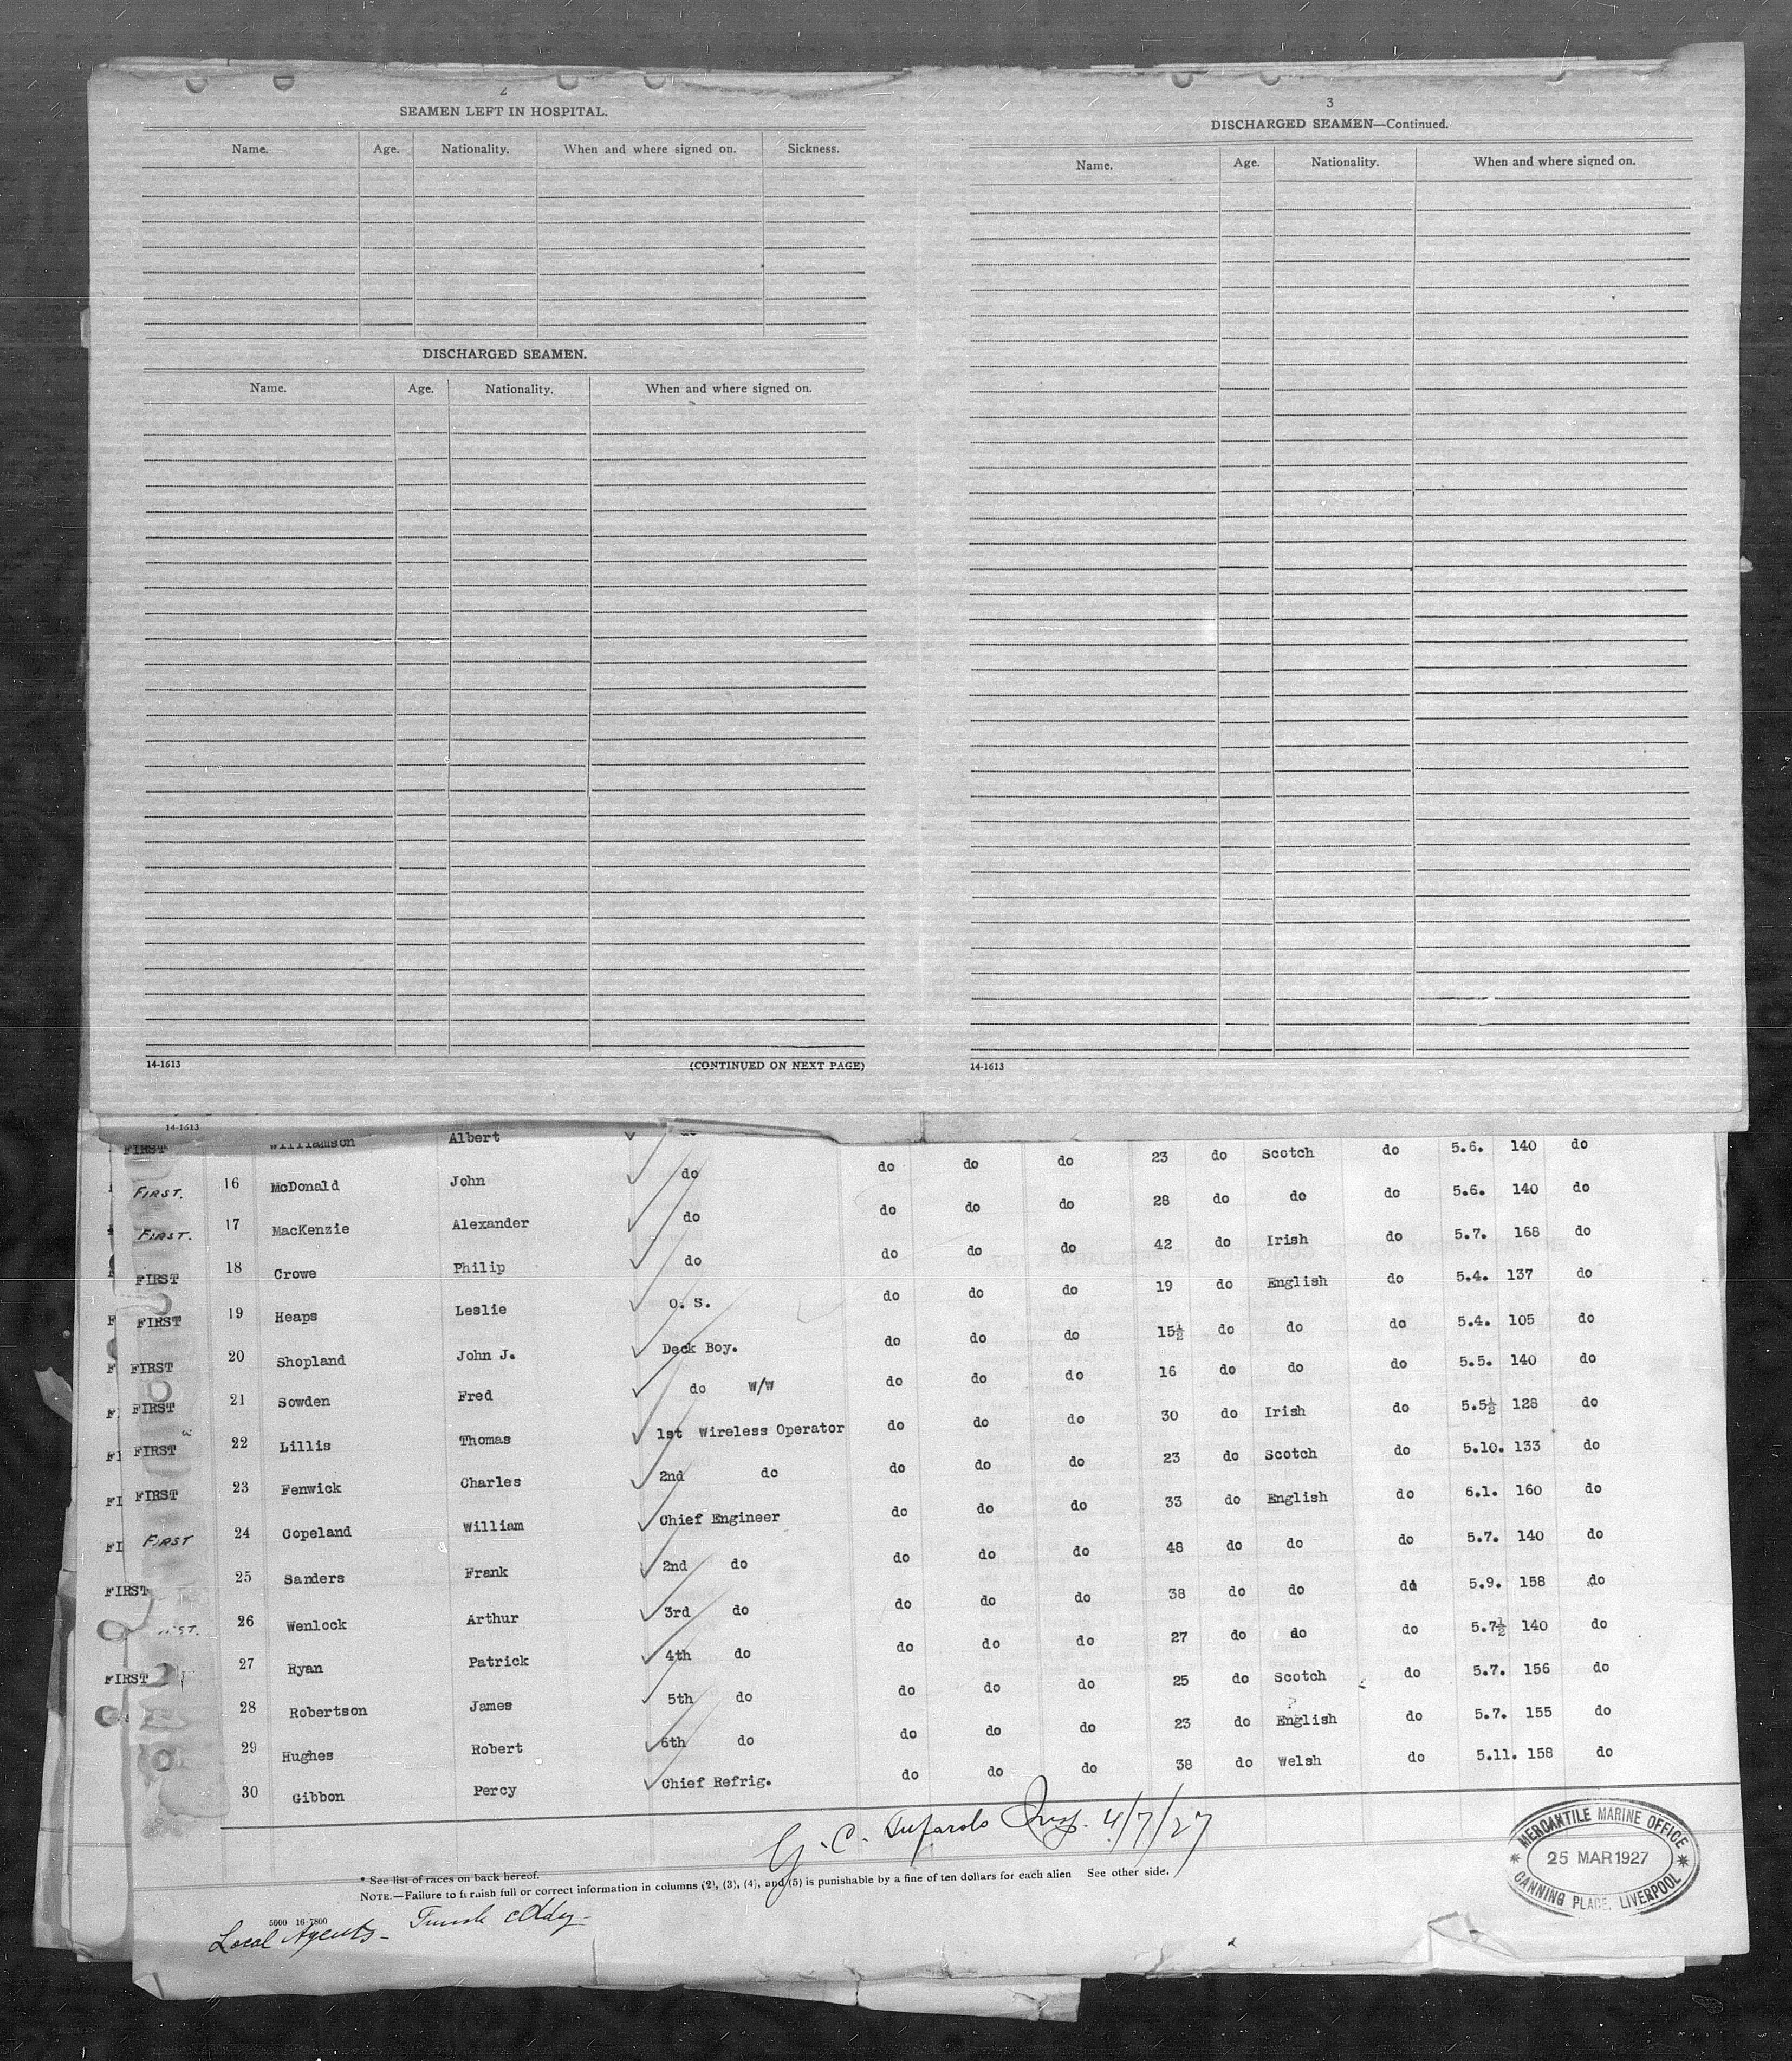 2
SEAMEN LEFT IN HOSPITAL.
Name. Age. Nationality. When and where signed on. Sickness.
DISCHARGED SEAMEN.
Name. Age. Nationality. When and where signed on.
14-1613 (CONTINUED ON NEXT PAGE)
3
DISCHARGED SEAMEN—Continued.
Name. Age. Nationality. When and where signed on.
14-1613
14-1613
FIRST Williamson Albert do
FIRST. 16 McDonald John do do do do 23 do Scotch do 5.6. 140 do
FIRST. 17 MacKenzie Alexander do do do do 28 do do do 5.6. 140 do
FIRST 18 Crowe Philip do do do do 42 do Irish do 5.7. 168 do
FIRST 19 Heaps Leslie O. S. do do do 19 do English do 5.4. 137 do
FIRST 20 Shopland John J. Deck Boy. do do do 15½ do do do 5.4. 105 do
FIRST 21 Sowden Fred do W/W do do do 16 do do do 5.5. 140 do
FIRST 22 Lillis Thomas 1st Wireless Operator do do do 30 do Irish do 5.5½ 128 do
FIRST 23 Fenwick Charles 2nd do do do do 23 do Scotch do 5.10. 133 do
FIRST 24 Copeland William Chief Engineer do do do 33 do English do 6.1. 160 do
FIRST 25 Sanders Frank 2nd do do do do 48 do do do 5.7. 140 do
26 Wenlock Arthur 3rd do do do do 38 do do do 5.9. 158 do
FIRST 27 Ryan Patrick 4th do do do do 27 do do do 5.7½ 140 do
28 Robertson James 5th do do do do 25 do Scotch do 5.7. 156 do
29 Hughes Robert 6th do do do do 23 do English do 5.7. 155 do
30 Gibbon Percy Chief Refrig. do do do 38 do Welsh do 5.11. 158 do
G. C. Insp. 4/7/27
* See list of races on back hereof.
NOTE.—Failure to furnish full or correct information in columns (2), (3), (4), and (5) is punishable by a fine of ten dollars for each alien See other side.
5000 16-7800
Local Agents-
MERCANTILE MARINE OFFICE
25 MAR 1927
CANNING PLACE, LIVERPOOL